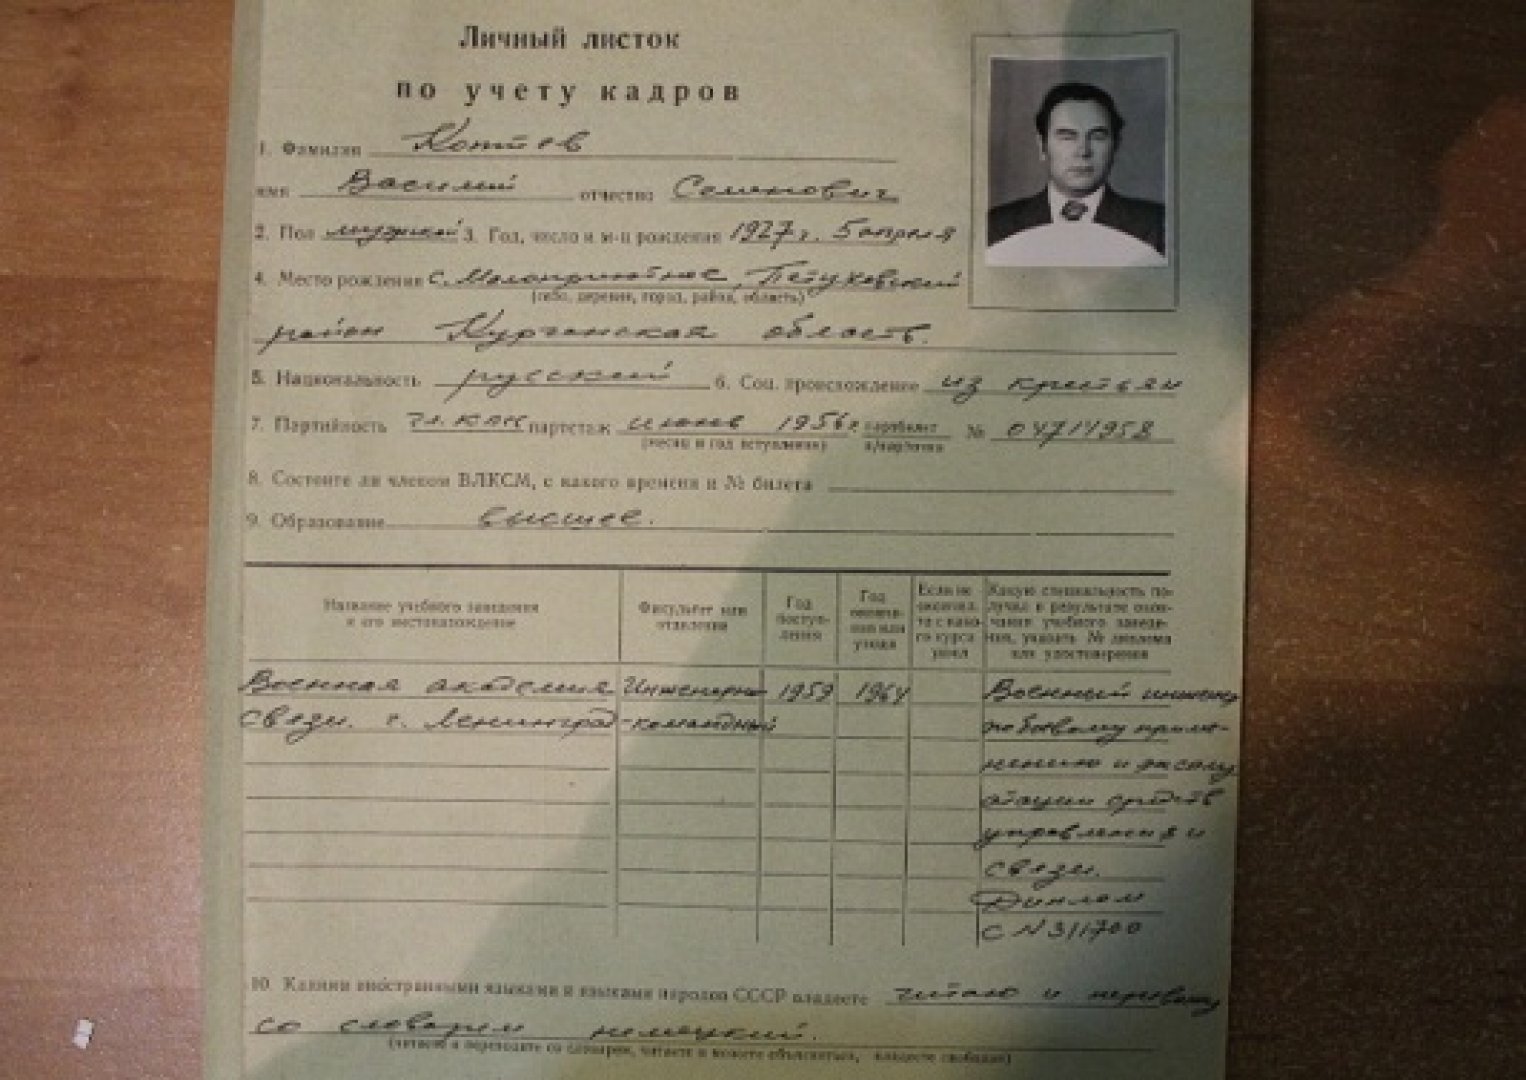 Личный листок
по учету кадров
1. Фамилия Коптев
имя Василий отчество Семенович
2. Пол мужской 3. Год, число и м-ц рождения 1927 г. 5 апреля
4. Место рождения с. Малоприютное, Петуховский
(село, деревня, город, район, область)
район Курганская область.
5. Национальность русский 6. Соц. происхождение из крестьян
7. Партийность чл. КПСС партстаж июнь 1956 г. партбилет № 04714958
(месяц и год вступления) к/карточка
8. Состоите ли членом ВЛКСМ, с какого времени и № билета
9. Образование высшее.
Название учебного заведения
и его местонахождение
Факультет или
отделение
Год
поступ-
ления
Год
оконча-
ния или
ухода
Если не
окончил,
то с како-
го курса
ушел
Какую специальность по-
лучил в результате окон-
чания учебного заведе-
ния, указать № диплома
или удостоверения
Военная академия
связи. г. Ленинград
Инженерно
-командный
1959
1964
Военный инженер
по боевому приме-
нению и эксплу
атации средств
управления и
связи.
Диплом
С N 311700
10. Какими иностранными языками и языками народов СССР владеете читаю и перевожу
со словарем немецкий.
(читаете и переводите со словарем, читаете и можете объясняться, владеете свободно)